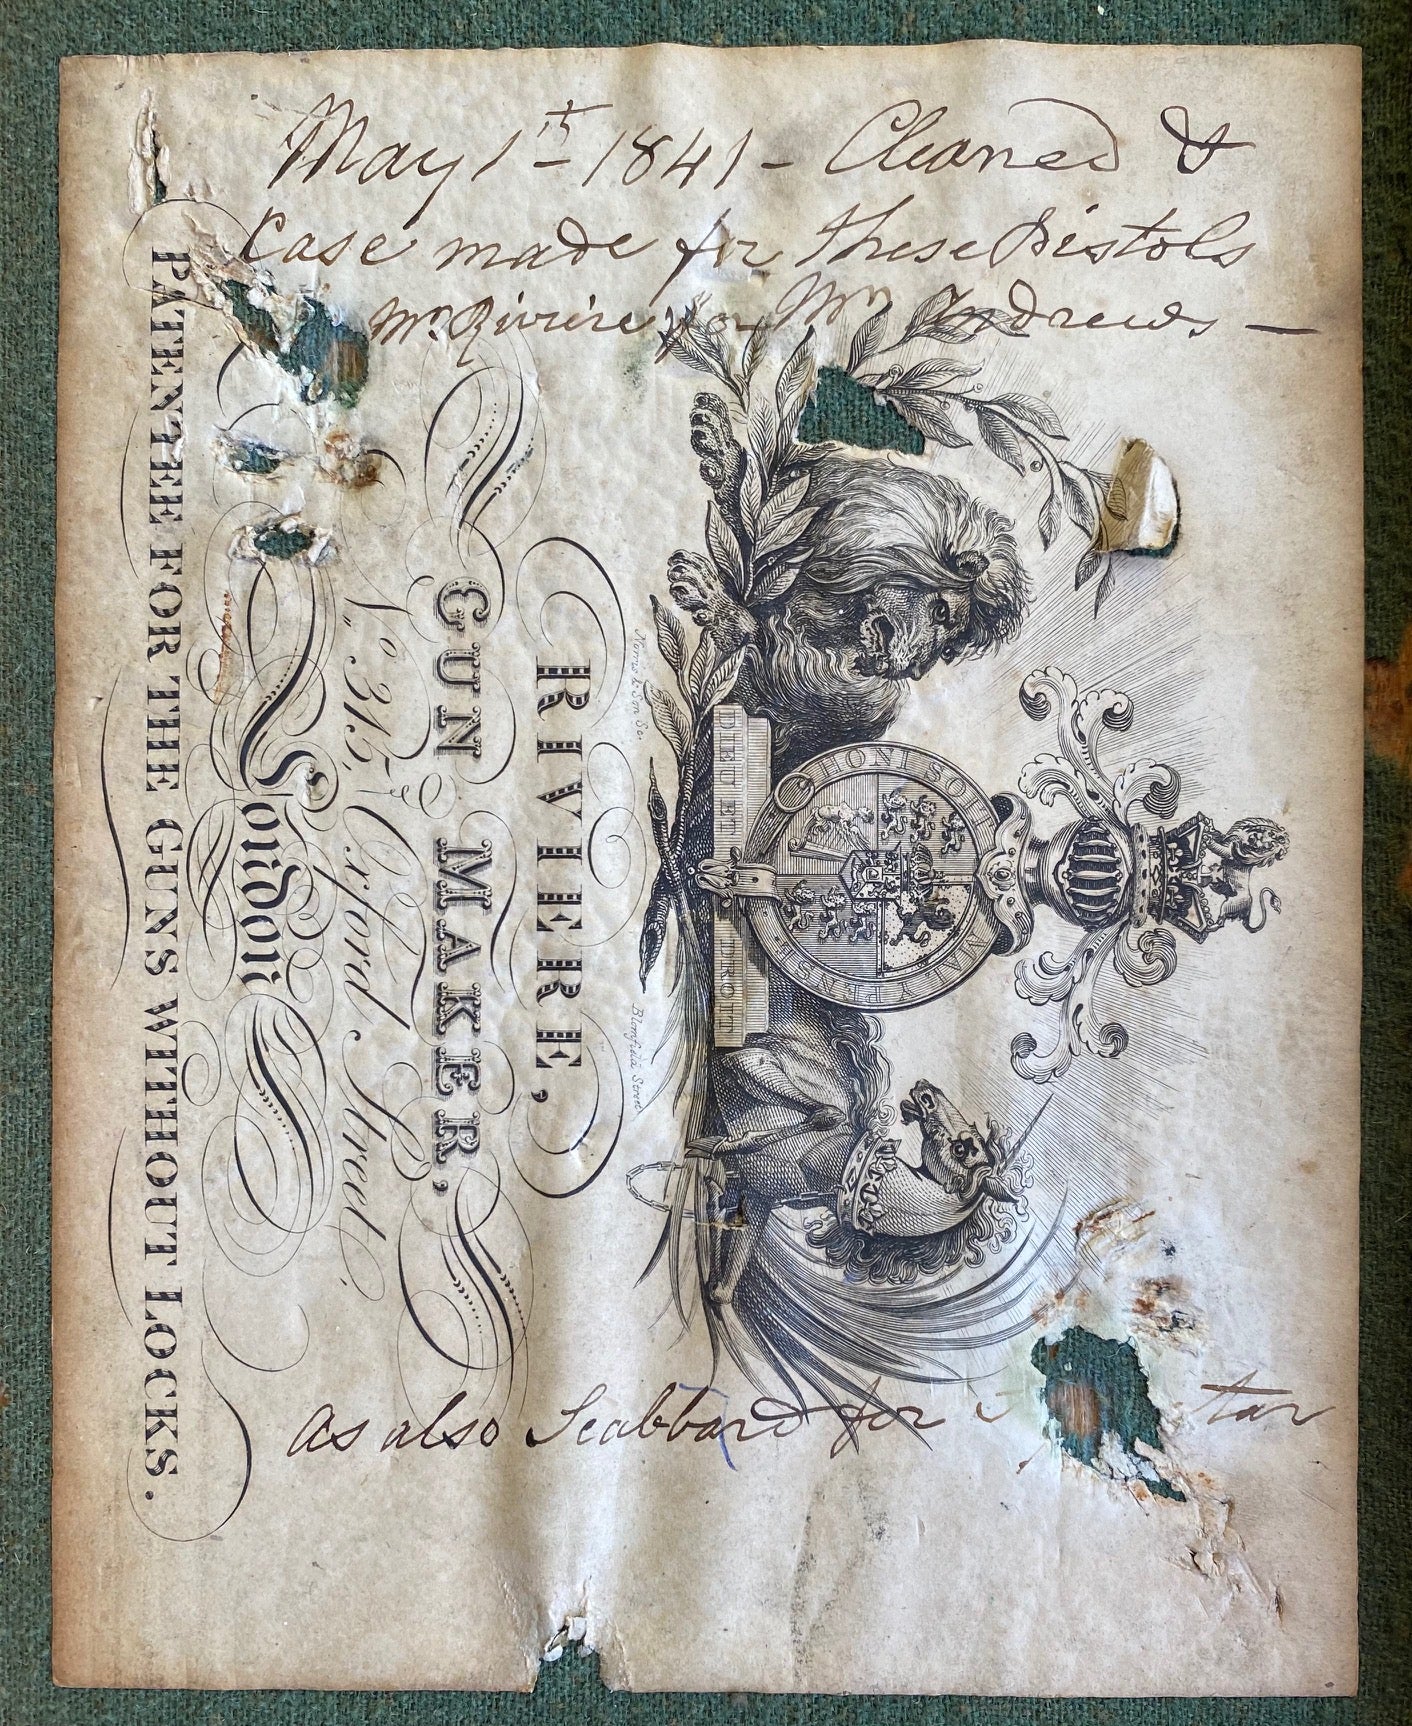 May 1st 1841 - Cleaned &
Case made for these Pistols
Mr. Riviere for Mr Andrews —
HONI SOIT MAL Y PENSE
DIEU ET DROIT
Norris & Son Sc.
Blomfield Street
RIVIERE,
GUN MAKER,
No. 315, Oxford Street,
London
PATENTEE FOR THE GUNS WITHOUT LOCKS.
as also Scabbard for tar